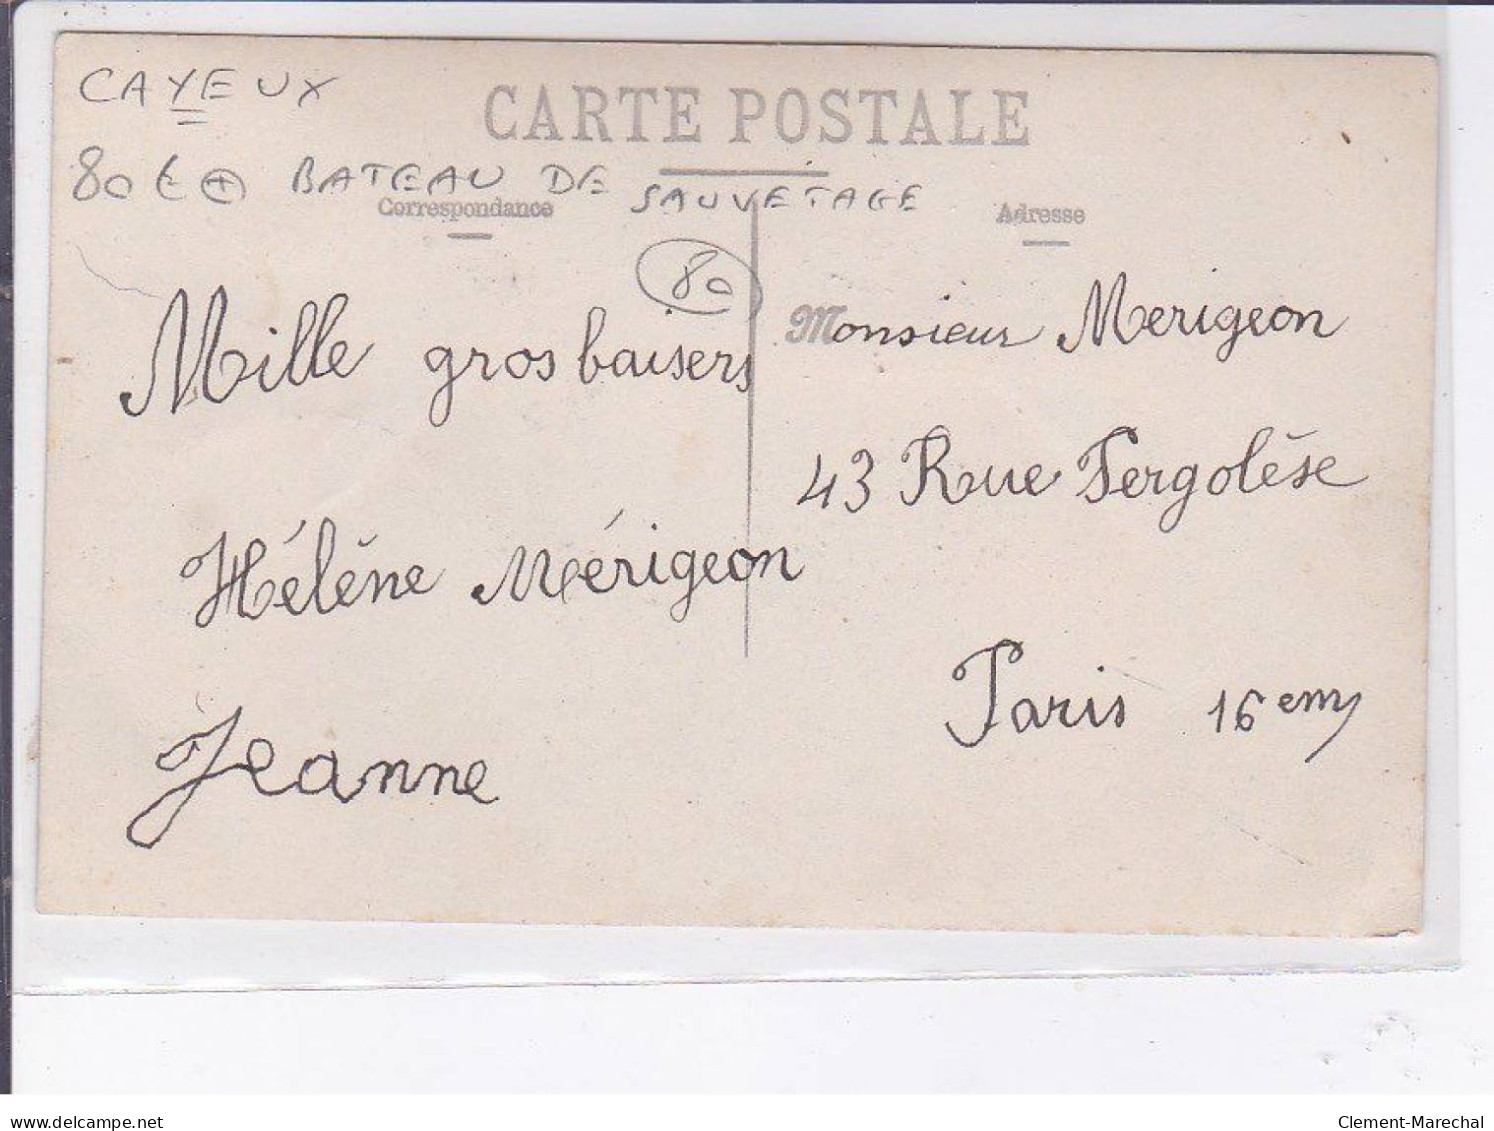 CAYEUX
CARTE POSTALE
80 € BATEAU DE SAUVETAGE
Correspondance
Adresse
80
Mille gros baisers
Hélène Mérigeon
Jeanne
Monsieur Merigeon
43 Rue Pergolèse
Paris 16em
www.delcampe.net
Clement-Marechal